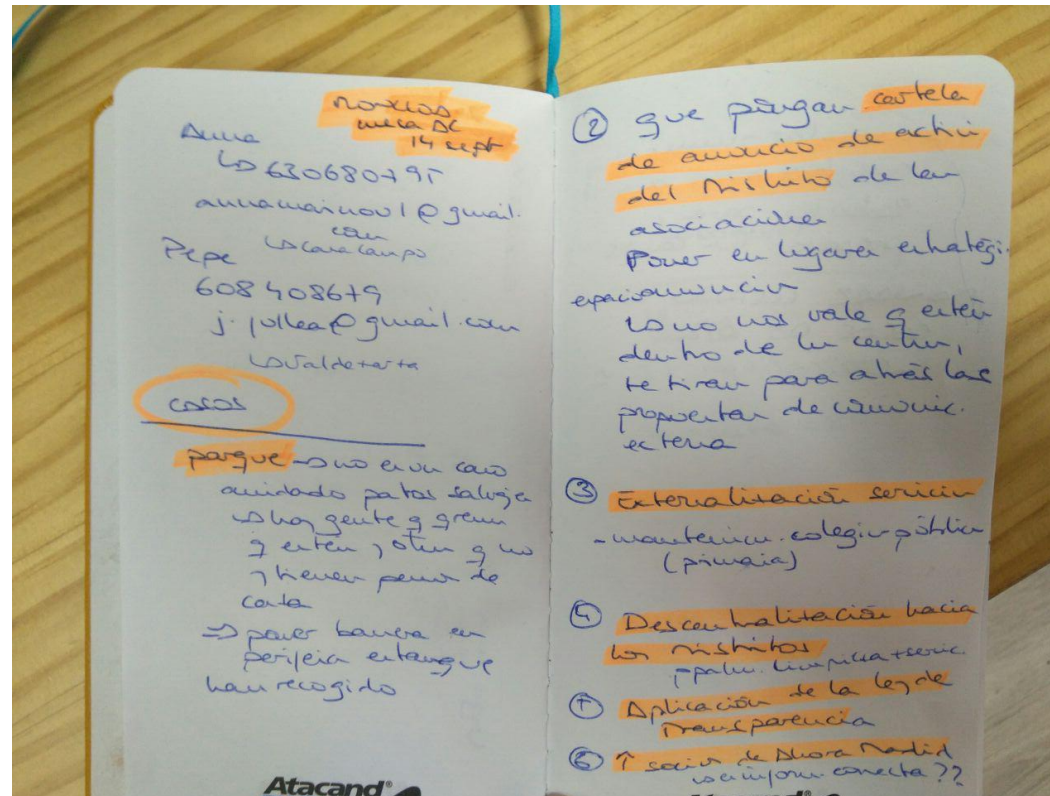 mesa DC
14 sept
Anna
↳ 630680795
annamainou1@gmail.
com
↳ casa campo
Pepe
608408679
j.jullea@gmail.com
casos
parque → no es un caso
cuidado patos
↳ hay gente q
q estén, otros q no
y tienen perros de
⇒ poner barrera en
periferia estanque
han recogido
Atacand®
② que pongan carteles
de anuncio de activi
del Distrito de las
asociaciones
Poner en lugares estratégi.
↳ no nos vale q estén
dentro de los centros,
te tiran para atrás las
propuestas de comunic.
externa
③ Externalización servicios
- mantenim. colegios públicos
(primaria)
④ Descentralización hacia
los Distritos
limpieza + servic.
⑤ Aplicación de la ley de
Transparencia
⑥ ↑ de Ahora Madrid
conecta??